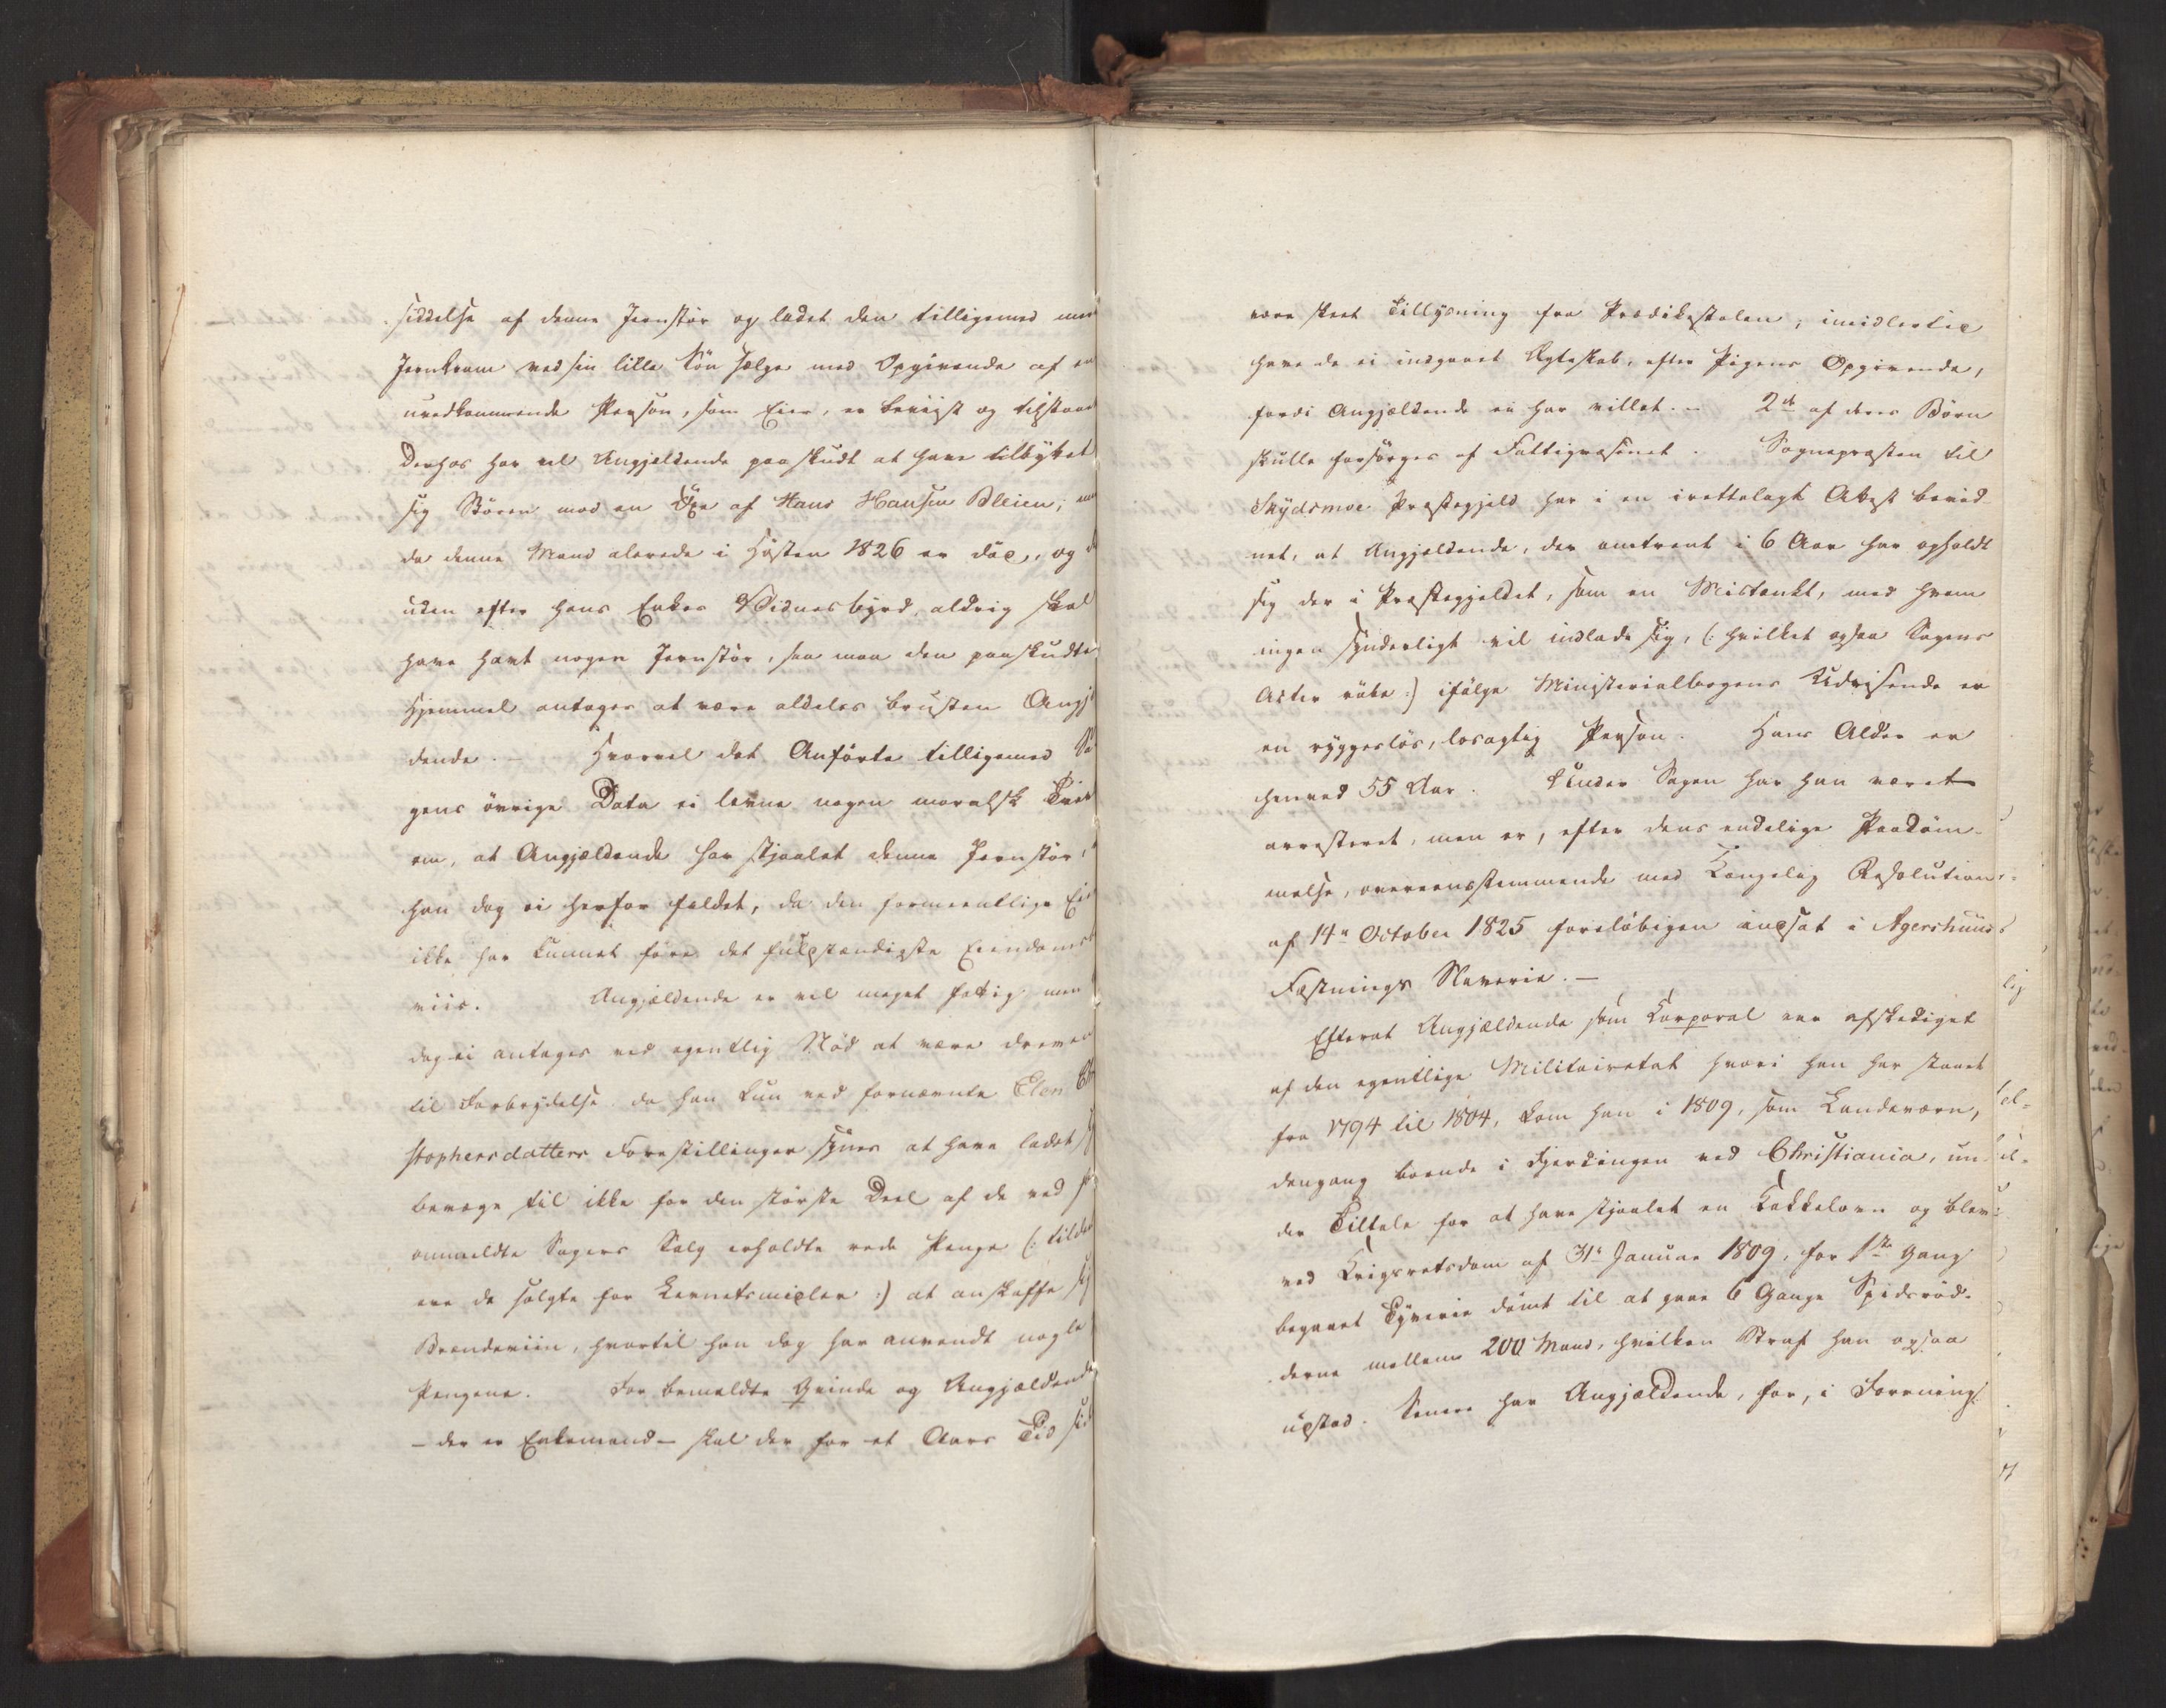 siddelse af denne Jernstör og ladet den tilligemed mere
Jernkram ved sin lille Sön sælge med Opgivende af en
uvedkommende Person, som Eier, er beviist og tilstaaet
Derhos har vel Angjeldende paaskudt at have tilbyttet
sig Stören mod en Öxe af Hans Hansen Bleien; men
da denne Mand alerede i Hösten 1826 er död, og des
uden efter hans Enkes Vidnesbyrd, aldrig skal
have havt nogen Jernstör, saa maa den paaskudte
Hjemmel antages at være aldeles brusten Angjæl
dende. – Hvorvel det Anförte tilligemed Sa
gens övrige Data ei levne nogen moralsk Tvivl
om, at Angjældende har stjaalet denne Jernstör,
han dog ei herfor fældet, da den formeentlige Eier
ikke har kunnet före det fuldstændigste Eiendoms
viis. Angjældende er vel meget fattig men
dog ei antages ved egentlig Nöd at være dreven
til Forbrydelse da han kun ved fornævnte Elen
stophersdatters Forestillinger synes at have ladet sig
bevæge til ikke for den störste Deel af de ved
anmeldte Sagers Salg erholdte rede Penge (: tildeels
ere de solgte for Levnetsmidler :) at anskaffe sig
Brændeviin, hvortil han dog har anvendt nogle
Pengene. For bemeldte Qvinde og Angjældende
– der er Enkemand – skal der for et Aars Tid siden
være skeet Tillysning fra Prædikestolen; imidlertid
have de ei indgaaet Ægteskab, efter Pigens Opgivende,
fordi Angjældende ei har villet. – 2de af deres Börn
skulle forsörges af Fattigvæsenet. Sognepræsten til
Skydsmoe Præstegjeld har i en irettelagt Attest bevid
net, at Angjeldende, der omtrent i 6 Aar har opholdt
sig der i Præstegjeldet, som en Mistænkt, med hvem
ingen synderligt vil indlade sig, (: hvilket ogsaa Sagens
Acter röbe :) ifölge Ministerialbogens Udvisende er
en ryggeslös, losagtig Person. Hans Alder er
henved 55 Aar. Under Sagen har han været
arresteret, men er, efter dens endelige Paadöm-
melse, overeensstemmende med Kongelig Resolution
af 14de October 1825 foreløbigen indsat i Agershuus
Fæstnings Slaverie. –
Efterat Angjældende som Corporal var afskediget
af den egentlige Militairetat hvori han har staaet
fra 1794 til 1804, kom han i 1809, som Landeværn,
dengang boende i Fjerdingen ved Christiania, un-
der Tiltale for at have stjaalet en Kakkelovn og blev
ved Krigsretsdom af 31te Januar 1809, for 1ste Gang
begaaet Tyverie dömt til at gaae 6 Gange Spidsröd-
derne mellem 200 Mand, hvilken Straf han ogsaa
udstod. Senere har Angjældende, for, i Forening